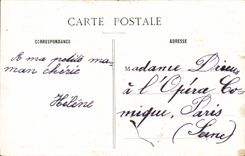 CARTE POSTALE
CORRESPONDANCE
ADRESSE
A ma petite ma-
man chérie
Hélène
Madame
à l'Opéra Co-
mique, Paris
(Seine)